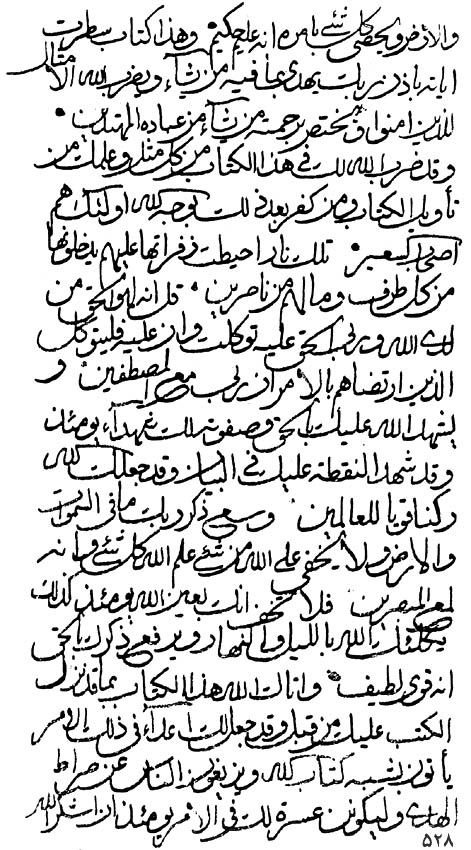 والارض ويحصي كل شئ بامره انه عليم حكيم وهذا كتاب سطرت
اياته باذن ربك يهدي بما فيه من يشآء ويضرب الله الامثال
للذين امنوا ويختص برحمته من يشآء من عباده المهتدين
وقد ضرب الله لك في هذا الكتاب من كل مثل وعلمك من
تأويل الكتاب ومن كفر بعد ذلك بوجه الله اولئك هم
اصحاب السعير تلك نار احيطت زفراتها عليهم يدخلونها
من كل طرف وما لهم من ناصرين قل انه لهو الحق من
لدى الله وربي الحق عليه توكلت وان عليه فليتوكل
الذين ارتضاهم بالامر ان ربي مع المصطفين و
يشهد الله عليك بالحق وصفوته لك شهدآء يومئذ
وقد شهد النقطة عليك في البيان وقد جعلك الله
ركنا قويا للعالمين وسمع ذكر ربك ما في السموات
والارض ولا يخفى على الله من شئ علم الله كل شئ وانه
لمع المبصرين فلا تحزن انك بعين الله يومئذ كذلك
يكلئك الله بالليل والنهار ويرفع ذكرك بالحق
انه قوي لطيف واتاك الله هذا الكتاب بما قد نزل
الكتب عليك من قبل وقد جعل لك اعدآء في ذلك الامر
يأتون بشبه كتاب الله ويزيغون الناس عن صراط
الهدى وليكونن عسرة لك في الامر يومئذ ان اشكر الله
٥٢٨